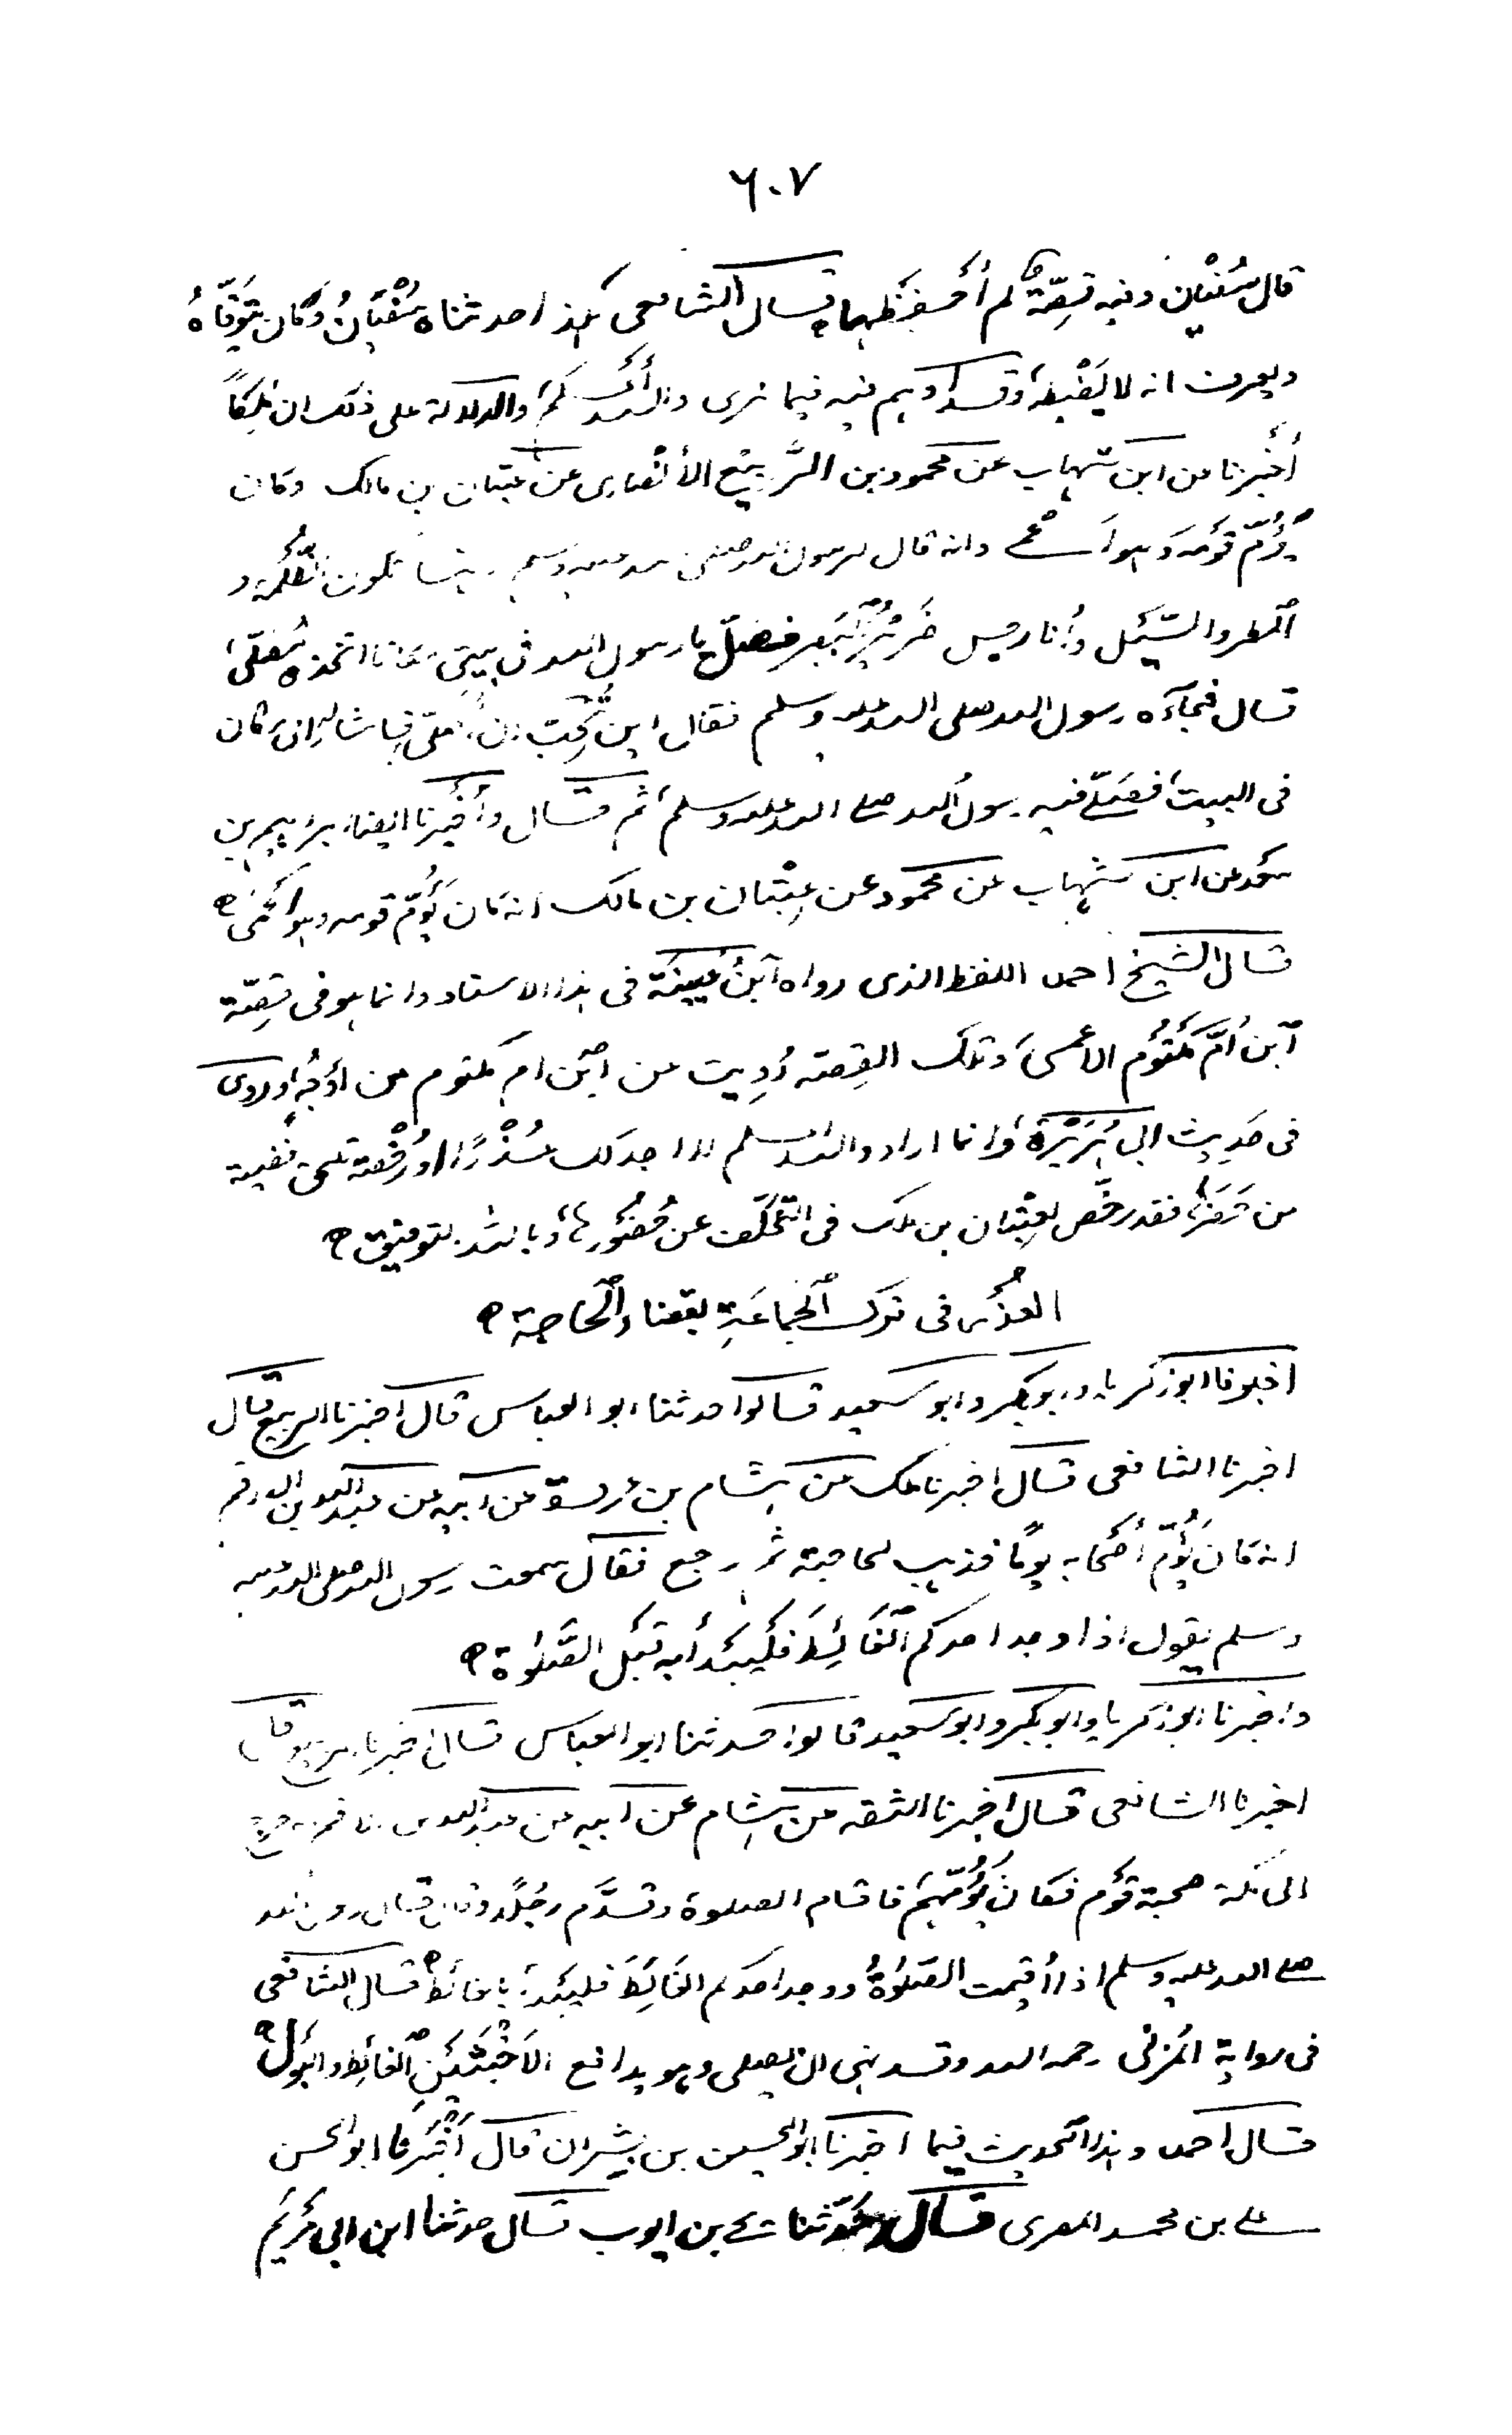 ٦٠٧
قال سُفْيٰن وفيه قِصّة لم أحفظها قال الشافعى هكذا حدثناه سُفْيَانُ وكَان يَتَوقّاهُ
ويعرف انه لا يَضْبِطه وقد اوهم فيه فيما نرى والله أعلم والدلالة على ذلك ان مٰلِكًا
أخْبرنا عن ابن شهاب عن محمود بن الرَّبيْع الأنْصارى عن عتبان بن مالك وكان
يَؤُمّ قَومَه وَهو اَعْمٰى وانه قال لرسول الله صلى الله عليه وسلم انها تكون الظُلْمَة و
المطر والسَّيْل وأنا رجل ضَرِيْرُ البَصَر فصَلّ يا رسول الله فى بيتى مكانا اتخذه مُصَلّىً
قال فجآءه رسول الله صلى الله عليه وسلم فقال اين تُحِبّ ان اُصَلّى فاشار له الى مكان
فى البيت فصَلّى فيه رسول الله صلى الله عليه وسلم ثم قال وأخْبرنا ايضا ابراهيم بن
سَعْد عن ابن شهاب عن محمود عن عِتْبان بن مالك انه كان يَؤُمّ قومه وهو اَعْمىٰ ه
قال الشيخ احمد اللفظ الذى رواه ابنُ عُيَيْنَة فى هذا الاسناد وانما هو فى قِصّة
ابن اُمّ مَكْتُوم الاَعْمىٰ وتلك القِصة رُوِيت عن ابن ام مكتوم من اَوْجُهٍ وروى
فى حَدِيث ابى هُرَيْرَة وانما اراد والله اعلم لا اجد لك عُذْرًا او رُخْصة تلحق فضيلة
من حَضَرَها فقد رخّص لعِتْبان بن مٰلك فى التّخَلّف عن حُضُورها وبالله التوفيق ه
العُذْر فى ترك الجَماعَةِ بقضاء الحَاجة ه
اخبرنا ابو زكريا وابو بكر وابو سعيد قالوا حدثنا ابو العباس قال اخبرنا الربيع قال
اخبرنا الشافعى قال اخبرنا مٰلك عن هشام بن عروة عن ابيه عن عبد الله بن الارقم
انه كانَ يَؤُمّ أصْحابه يومًا فذهب لحاجته ثم رجع فقال سمعت رسول الله صلى الله عليه
وسلم يقول اذا وجد احدكم الغَائِطَ فَلْيَبْدَأْ به قَبْل الصَّلٰوة ه
واخبرنا ابو زكريا وابو بكر وابو سعيد قالوا حدثنا ابو العباس قال اخبرنا الربيع قال
اخبرنا الشافعى قال اخبرنا الثقه عن هشام عن ابيه عن عبد الله بن الارقم انه خرج
الى مكة صحبة قَوْم فكان يَؤُمّهم فاقام الصلوة وقدَّم رجُلًا وقال قال رسول الله
صلى الله عليه وسلم اذا أُقيمت الصَّلٰوةُ ووجد احدكم الغَائِطَ فليَبْدَأ بالغائط ه قال الشافعى
فى رواية المُزنى رحمه الله وقد نهى ان يصلى وهو يدافع الاَخْبَثَيْنِ الغائط والبَول ه
قال احمد وهذا الحديث فيما اخبرنا ابو الحسين بن بشران قال اَخْبَرنا ابو الحسن
على بن محمد المصرى قال حَدّثنا يحيى بن ايوب قال حدثنا ابن ابى مَرْيَم